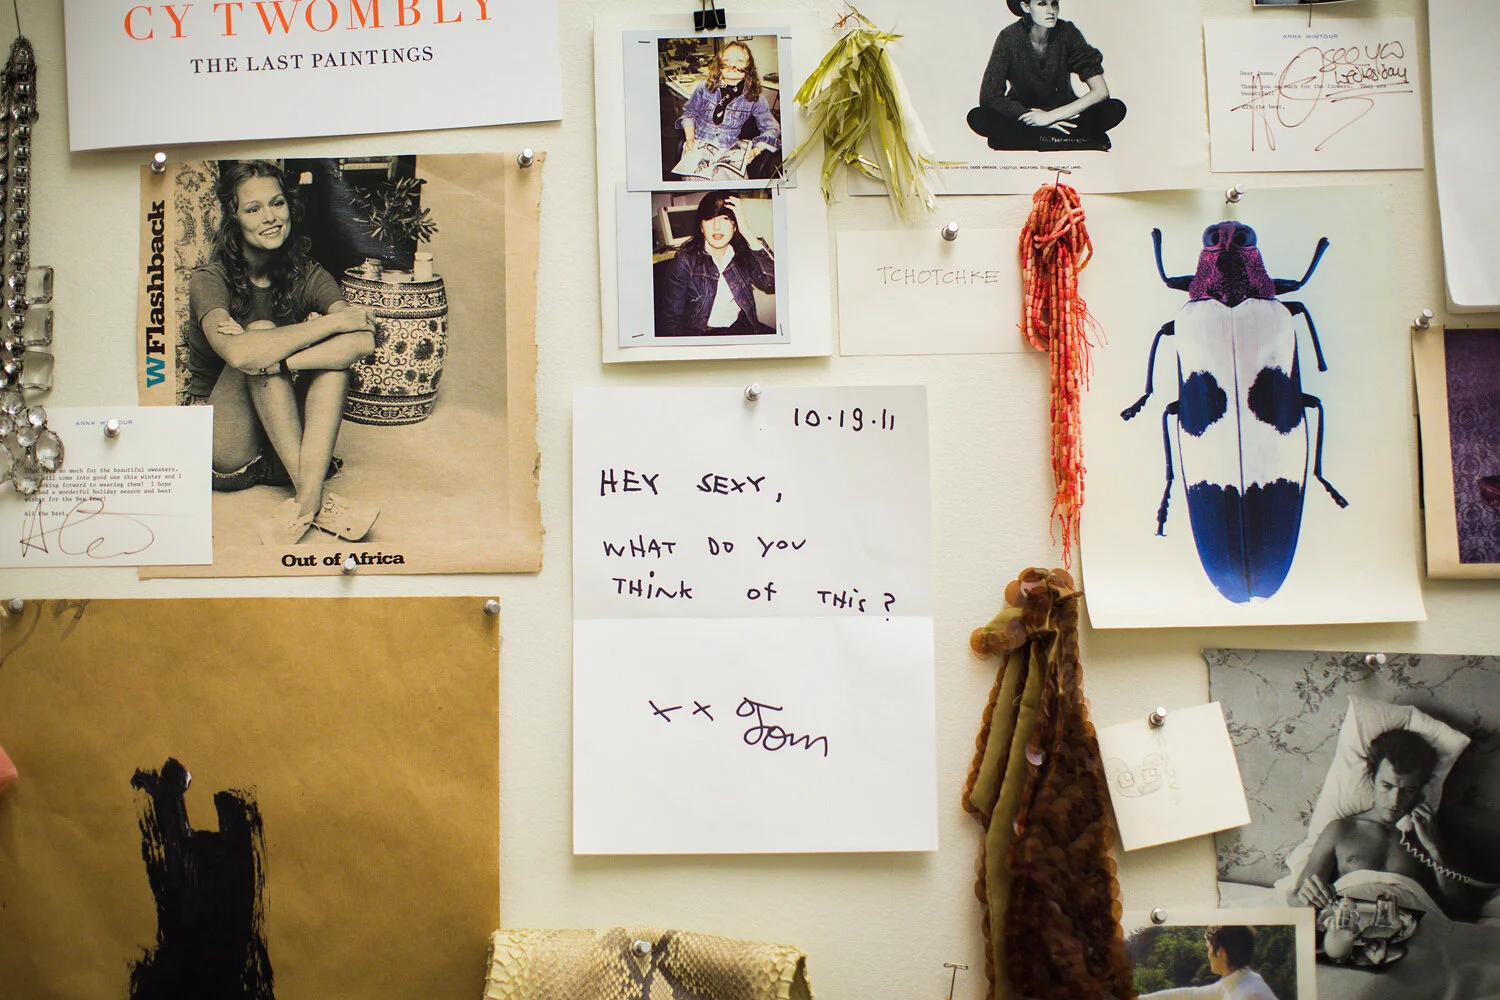 CY TWOMBLY
THE LAST PAINTINGS
W Flashback
Out of Africa
ANNA WINTOUR
so much for the beautiful sweaters.
will come into good use this winter and I
looking forward to wearing them! I hope
had a wonderful holiday season and best
wishes for the New Year!
All the best,
TCHOTCHKE
10.19.11
HEY SEXY,
WHAT DO YOU
THINK OF THIS?
XX Tom
ANNA WINTOUR
see you
Wednesday
Dear Jenna,
Thank you so much for the flowers. They are
beautiful!
All the best,